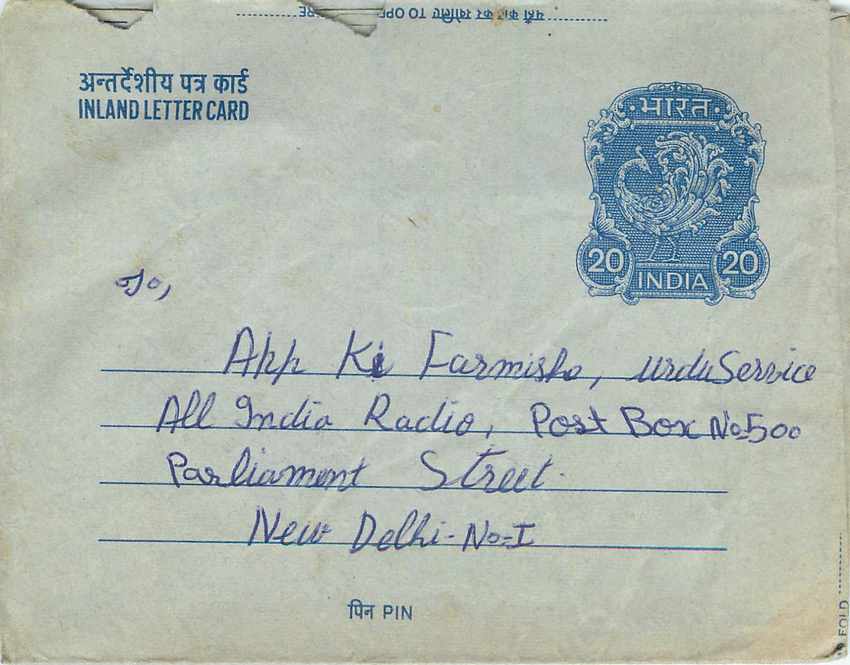 यहाँ काट कर खोलिए TO OPE
अन्तर्देशीय पत्र कार्ड
INLAND LETTER CARD
भारत
20 20
INDIA
To,
App Ki Farmisho, urdu Service
All India Radio, Post Box No-500
Parliament Street.
New Delhi-No-I
पिन PIN
FOLD